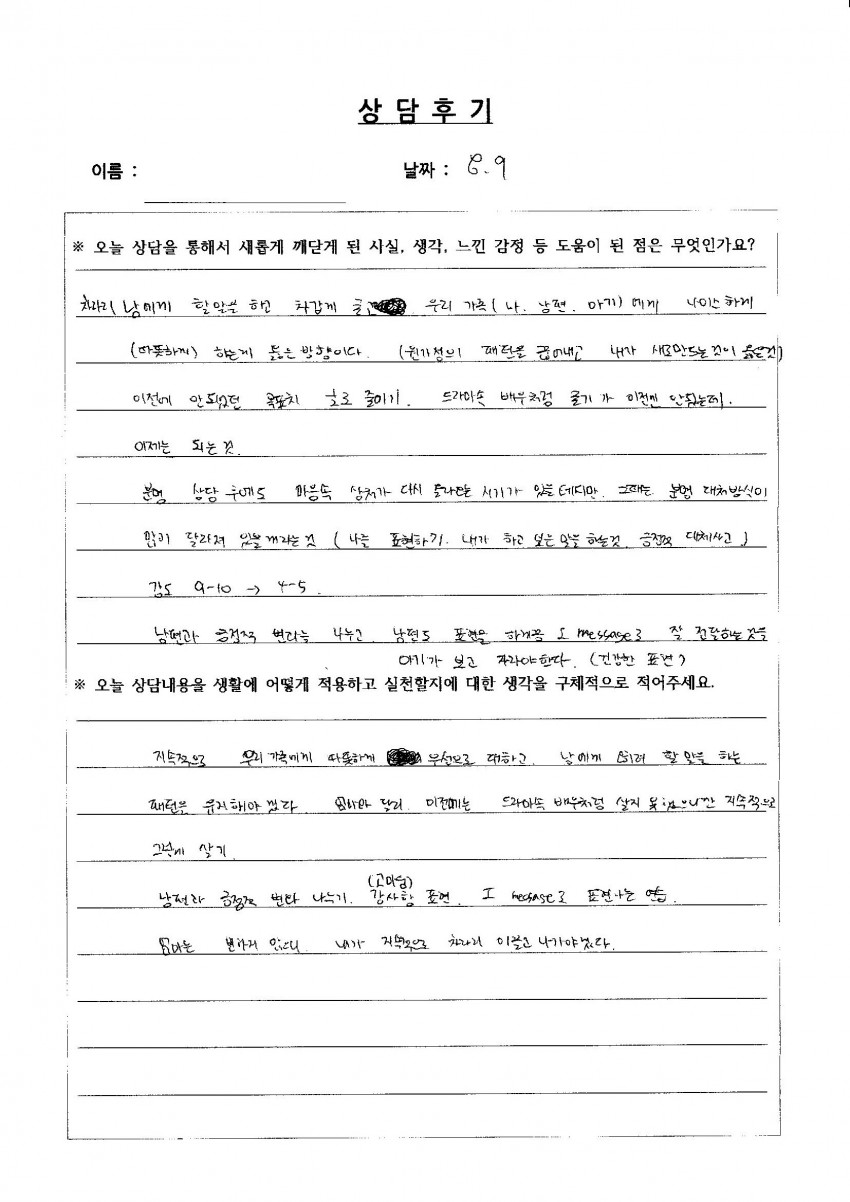 상 담 후 기
이름 :
날짜 : 6. 9
※ 오늘 상담을 통해서 새롭게 깨닫게 된 사실, 생각, 느낀 감정 등 도움이 된 점은 무엇인가요?
차라리 남에게 할말을 하고 차갑게 우리 가족 ( 나. 남편. 아기 ) 에게 나이스하게
(따뜻하게) 하는게 옳은 방향이다. (원가정의 패턴을 끊어내고 내가 새로만드는것이 옳은것)
이전에 안되었던 목표치 줄이기. 드라마속 배우처럼 울기가 이전엔 안됬는데.
이제는 되는 것.
분명 상담 후에도 마음속 상처가 다시 올라오는 시기가 있을 테지만. 그때는 분명 대처방식이
많이 달라져 있을 거라는 것 ( 나를 표현하기. 내가 하고 싶은 말을 하는것. 긍정적 대체사고 )
강도 9-10 → 4-5.
남편과 긍정적 변화를 나누고. 남편도 표현을 하게끔 I message로 잘 전달하는것을
아기가 보고 자라야한다. (건강한 표현)
※ 오늘 상담내용을 생활에 어떻게 적용하고 실천할지에 대한 생각을 구체적으로 적어주세요.
지속적으로 우리가족에게 따뜻하게 우선으로 대하고. 남에게 오히려 할 말을 하는
패턴은 유지해야 겠다. 엄마와 달리. 이전에는 드라마속 배우처럼 살지 못했으니깐 지속적으로
그렇게 살기.
남편과 긍정적 변화 나누기. (고마움) 감사함 표현. I message로 표현하는 연습.
엄마는 변하지 않으니. 내가 지속적으로 차라리 이끌고 나가야겠다.